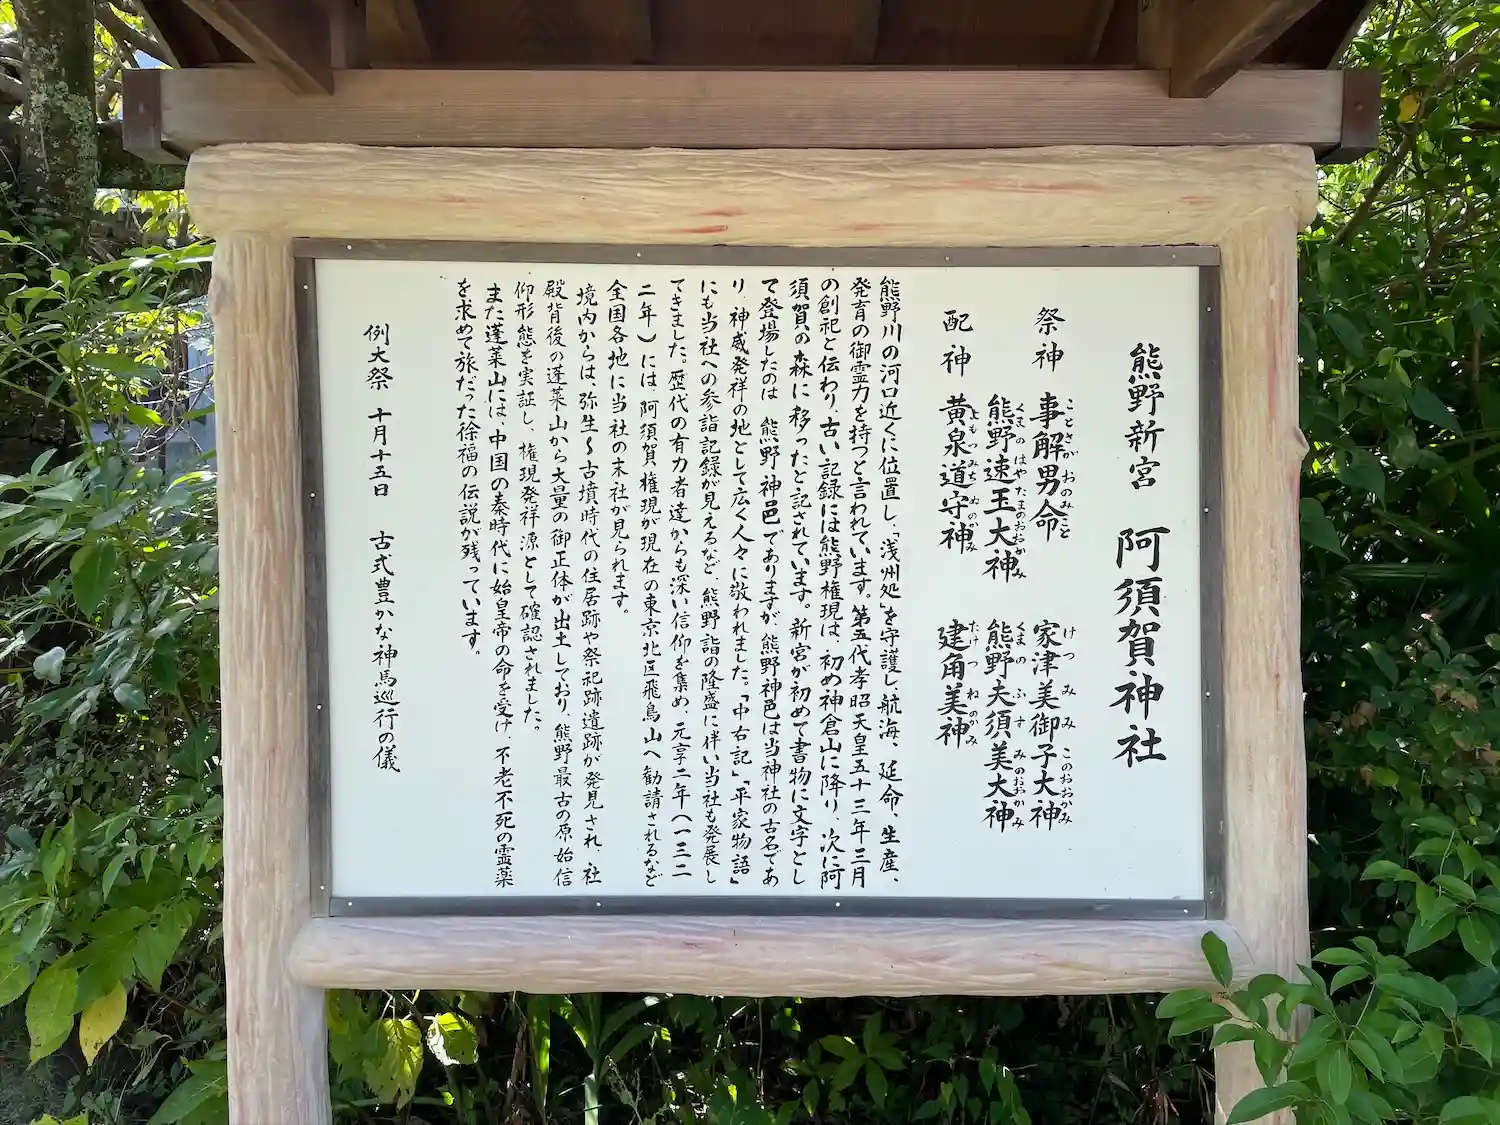 熊野新宮 阿須賀神社
祭神 事解男命 家津美御子大神
ことさかおのみこと けつみみこのおおかみ
熊野速玉大神 熊野夫須美大神
くまのはやたまのおおかみ くまのふすみのおおかみ
配神 黄泉道守神 建角美神
よもつみちもりのかみ たけつねのかみ
熊野川の河口近くに位置し、「浅州処」を守護し航海、延命、生産、
発育の御霊力を持つと言われています。第五代孝昭天皇五十三年三月
の創祀と伝わり、古い記録には熊野権現は、初め神倉山に降り、次に阿
須賀の森に移ったと記されています。新宮が初めて書物に文字とし
て登場したのは 熊野神邑でありますが 熊野神邑は当神社の古名であ
り、神威発祥の地として広く人々に敬われました。「中右記」「平家物語」
にも当社への参詣記録が見えるなど、熊野詣の隆盛に伴い当社も発展し
てきました。歴代の有力者達からも深い信仰を集め、元享二年(一三二
二年)には、阿須賀権現が現在の東京北区飛鳥山へ勧請されるなど
全国各地に当社の末社が見られます。
境内からは、弥生~古墳時代の住居跡や祭祀跡遺跡が発見され、社
殿背後の蓬莱山から大量の御正体が出土しており、熊野最古の原始信
仰形態を実証し、権現発祥源として確認されました。
また蓬莱山には、中国の秦時代に始皇帝の命を受け、不老不死の霊薬
を求めて旅だった徐福の伝説が残っています。
例大祭 十月十五日 古式豊かな神馬巡行の儀